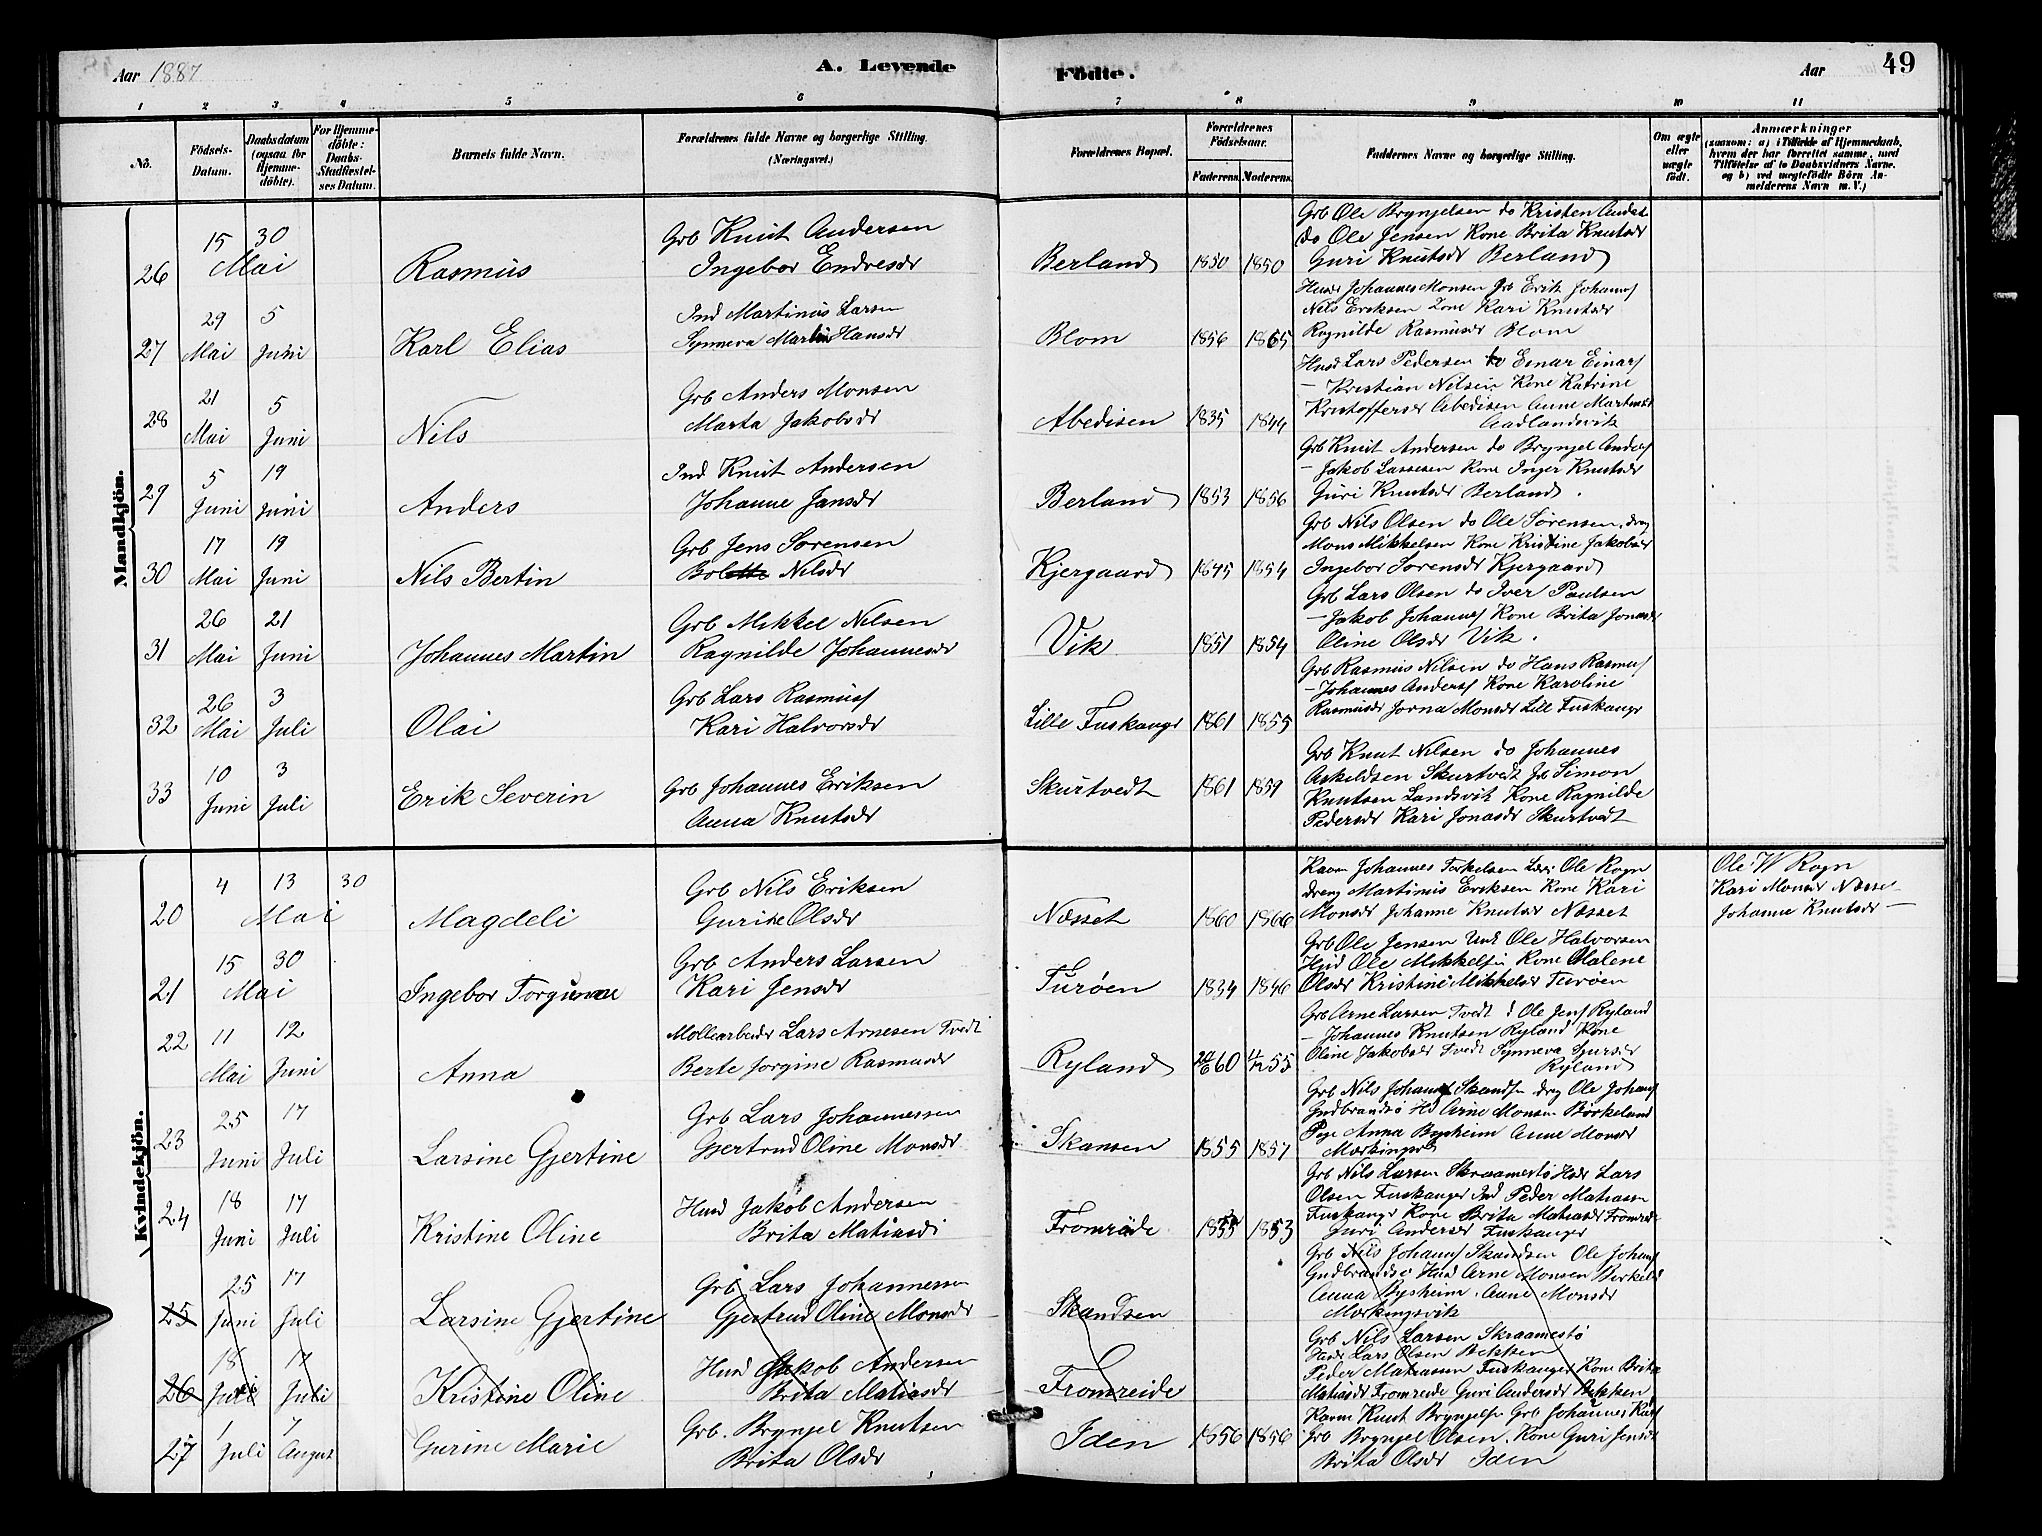 Aar 1887
A. Levende
Födte.
Aar
49
1 2 3 4 5 6 7 8 9 10 11
No.
Födsels-Datum.
Daabsdatum (ogsaa for Hjemme-döbte).
For Hjemme-döbte: Daabs-Stadfæstel-ses Datum.
Barnets fulde Navn.
Forældrenes fulde Navne og borgerlige Stilling. (Næringsvei.)
Forældrenes Bopæl.
Forældrenes Födselsaar.
Faderens. Moderens.
Faddernes Navne og borgerlige Stilling.
Om ægte eller uægte födt.
Anmærkninger
(saasom: a) i Tilfælde af Hjemmedaab, hvem der har forrettet samme, med Tilföielse af to Daabsvidners Navne. og b) ved uægtefödte Börn An-melderens Navn m. V.)
Mandkjön.
26 15 30 Mai Rasmus
Grb Knut Andersen
Ingebor Endresdr
Berland 1850 1850
Grb Ole Brynjelsen do Kristen Anders
do Ole Jensen Kone Brita Knutsdr
Guri Knutsdr Berland
27 29 Mai 5 Juni Karl Elias
Ind Martinus Larsen
Synneva Martin Hansdr
Blom 1856 1865
Husdr Johannes Monsen Grb Erik Johans
Nils Eriksen Kone Kari Knutsdr
Ragnilde Rasmusdr Blom
28 21 Mai 5 Juni Nils
Grb Anders Monsen
Marta Jakobsdr
Abedisen 1835 1844
Husd Lars Pedersen do Einar Einars
— Kristian Nilsen Kone Katrine
Kristoffersdr Abedisen Anne Martinsdr
Aadlandsvik
29 5 Juni 19 Juni Anders
Ind Knut Andersen
Johanne Jansdr
Berland 1853 1856
Grb Knut Andersen do Brynjel Anders
— Jakob Lassesen Kone Inger Knutsdr
Guri Knutsdr Berland.
30 17 Mai 19 Juni Nils Bertin
Grb Jens Sörensen
Bolette Nilsdr
Kjergaard 1845 1854
Grb Nils Olsen do Ole Sörensen, drg
Mons Mikkelsen Kone Kristine Jakobsdr
Ingebor Sörensdr Kjergaard
31 26 Mai 21 Juni Johannes Martin
Grb Mikkel Nilsen
Ragnilde Johannesdr
Vik 1851 1854
Grb Lars Olsen do Iver Paulsen
— Jakob Johannes Kone Brita Jonasdr
Oline Olsdr Vik.
32 26 Mai 3 Juli Olai
Grb Lars Rasmus
Kari Halvorsdr
Lille Fuskanger 1861 1855
Grb Rasmus Nilsen do Hans Rasmus
— Johannes Anders Kone Karoline
Rasmusdr Jorna Monsdr Lill Fuskangr
33 10 Juni 3 Juli Erik Severin
Grb Johannes Eriksen
Anna Knutsdr
Skurtvedt 1861 1859
Grb Knut Nilsen do Johannes
Askeldsen Skurtvedt Grb Simon
Knutsen Landsvik Kone Ragnilde
Pedersdr Kari Jonasdr Skurtvedt
Kvindekjön.
20 4 13 30 Mai Magdeli
Grb Nils Eriksen
Gurine Olsdr
Næsset 1860 1866
Kaarm Johannes Torkelsen Lær Ole Rogn
dreng Martinus Eriksen Kone Kari
Monsdr Johanne Knutsdr Næsset
Ole W Rogn
Kari Monsdr Næsse
Johanne Knutsdr —
21 15 30 Mai Ingebor Torgunne
Grb Anders Larsen
Kari Jensdr
Turöen 1834 1846
Grb Ole Jensen Unk Ole Halvorsen
Husd Ole Mikkelsen Kone Olalene
Olsdr Kristine Mikkelsdr Turöen
22 11 Mai 12 Juni Anna
Möllearbeider Lars Arnesen Tvedt
Berte Jorgine Rasmusdr
Ryland 24/6 60 11/12 55
Grb Arne Larsen Tvedt d Ole Jens Ryland
— Johannes Knutsen Ryland Kone
Oline Jakobsdr Tvedt Synneva Sjursdr
Ryland
23 25 Juni 17 Juli Larsine Gjertine
Grb Lars Johannessen
Gjertrud Oline Monsdr
Skansen 1855 1857
Grb Nils Johans Skandsn drg Ole Johans
Gudbrandsö Hd Arne Monsen Börkeland
Pige Anna Bysheim Anne Monsdr
24 18 Juni 17 Juli Kristine Oline
Husd Jakob Andersen
Brita Matiasdr
Fromreide 1853
Grb Nils Larsen Skraamestö Hsdr Lars
Olsen Fuskanger Ind Peder Matiassen
Fuskangr Kone Brita Matiasdr Fromreide
Guri Andersdr Fuskanger
25 25 Juni 17 Juli Larsine Gjertine
Grb Lars Johannessen
Gjertrud Oline Monsdr
Skandsen
Grb Nils Johans Skandsen Ole Johans
Gudbrandsö Husd Arne Monsen Berkeld
Anna Bysheim. Anne Monsdr
Mærkingsvik
26 18 17 Juli Kristine Oline
Husd Jakob Andersen
Brita Matiasdr
Fromreide
Grb Nils Larsen Skraamestö
Husd Lars Olsen Bekken
Peder Matiassen Fuskanger Kone Brita
Matiasdr Fromreide Guri Andersdr Bekken
27 1 Juli 7 August Gurine Marie
Grb. Brynjel Knutsen
Brita Olsdr
Iden 1856 1856
Kaarm Knut Brynjels Grb Johannes Karl
Grb Brynjel Olsen. Kone Guri Jensdr
Brita Olsdr Iden